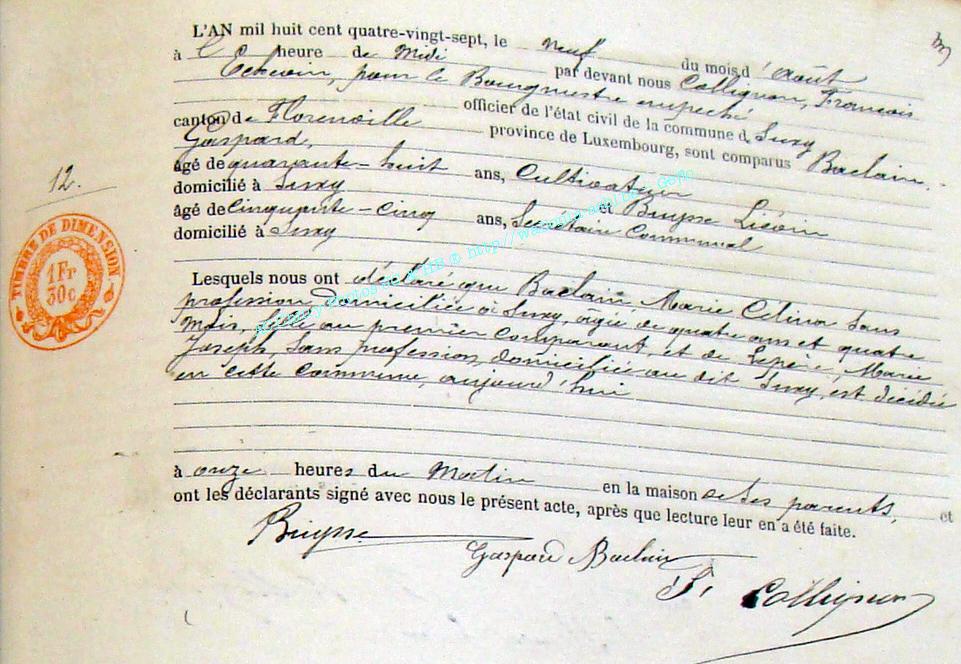 L'AN mil huit cent quatre-vingt-sept, le neuf du mois d'Août
à l heure de Midi par devant nous Collignon, François
Echevin, pour le Bourgmestre empeché
officier de l'état civil de la commune de Suxy
canton de Florenville province de Luxembourg, sont comparus Baclain
Gaspard,
âgé de quarante-huit ans, Cultivateur
domicilié à Suxy et Buysse Liévin
âgé de Cinquante-Cinq ans, Secrétaire Communal
domicilié à Suxy
Lesquels nous ont déclaré que Baclain Marie Célina Sans
profession, domiciliée à Suxy, âgée de quatre ans et quatre
Mois, fille au premier comparant, et de Lepère, Marie
Joseph, Sans profession, domiciliée au dit Suxy, est décédée
en cette Commune, aujourd'hui
à onze heures du Matin en la maison de Ses parents, et
ont les déclarants signé avec nous le présent acte, après que lecture leur en a été faite.
Buysse
Gaspard Baclain
F. Collignon
12.
TIMBRE DE DIMENSION
1 Fr
30c